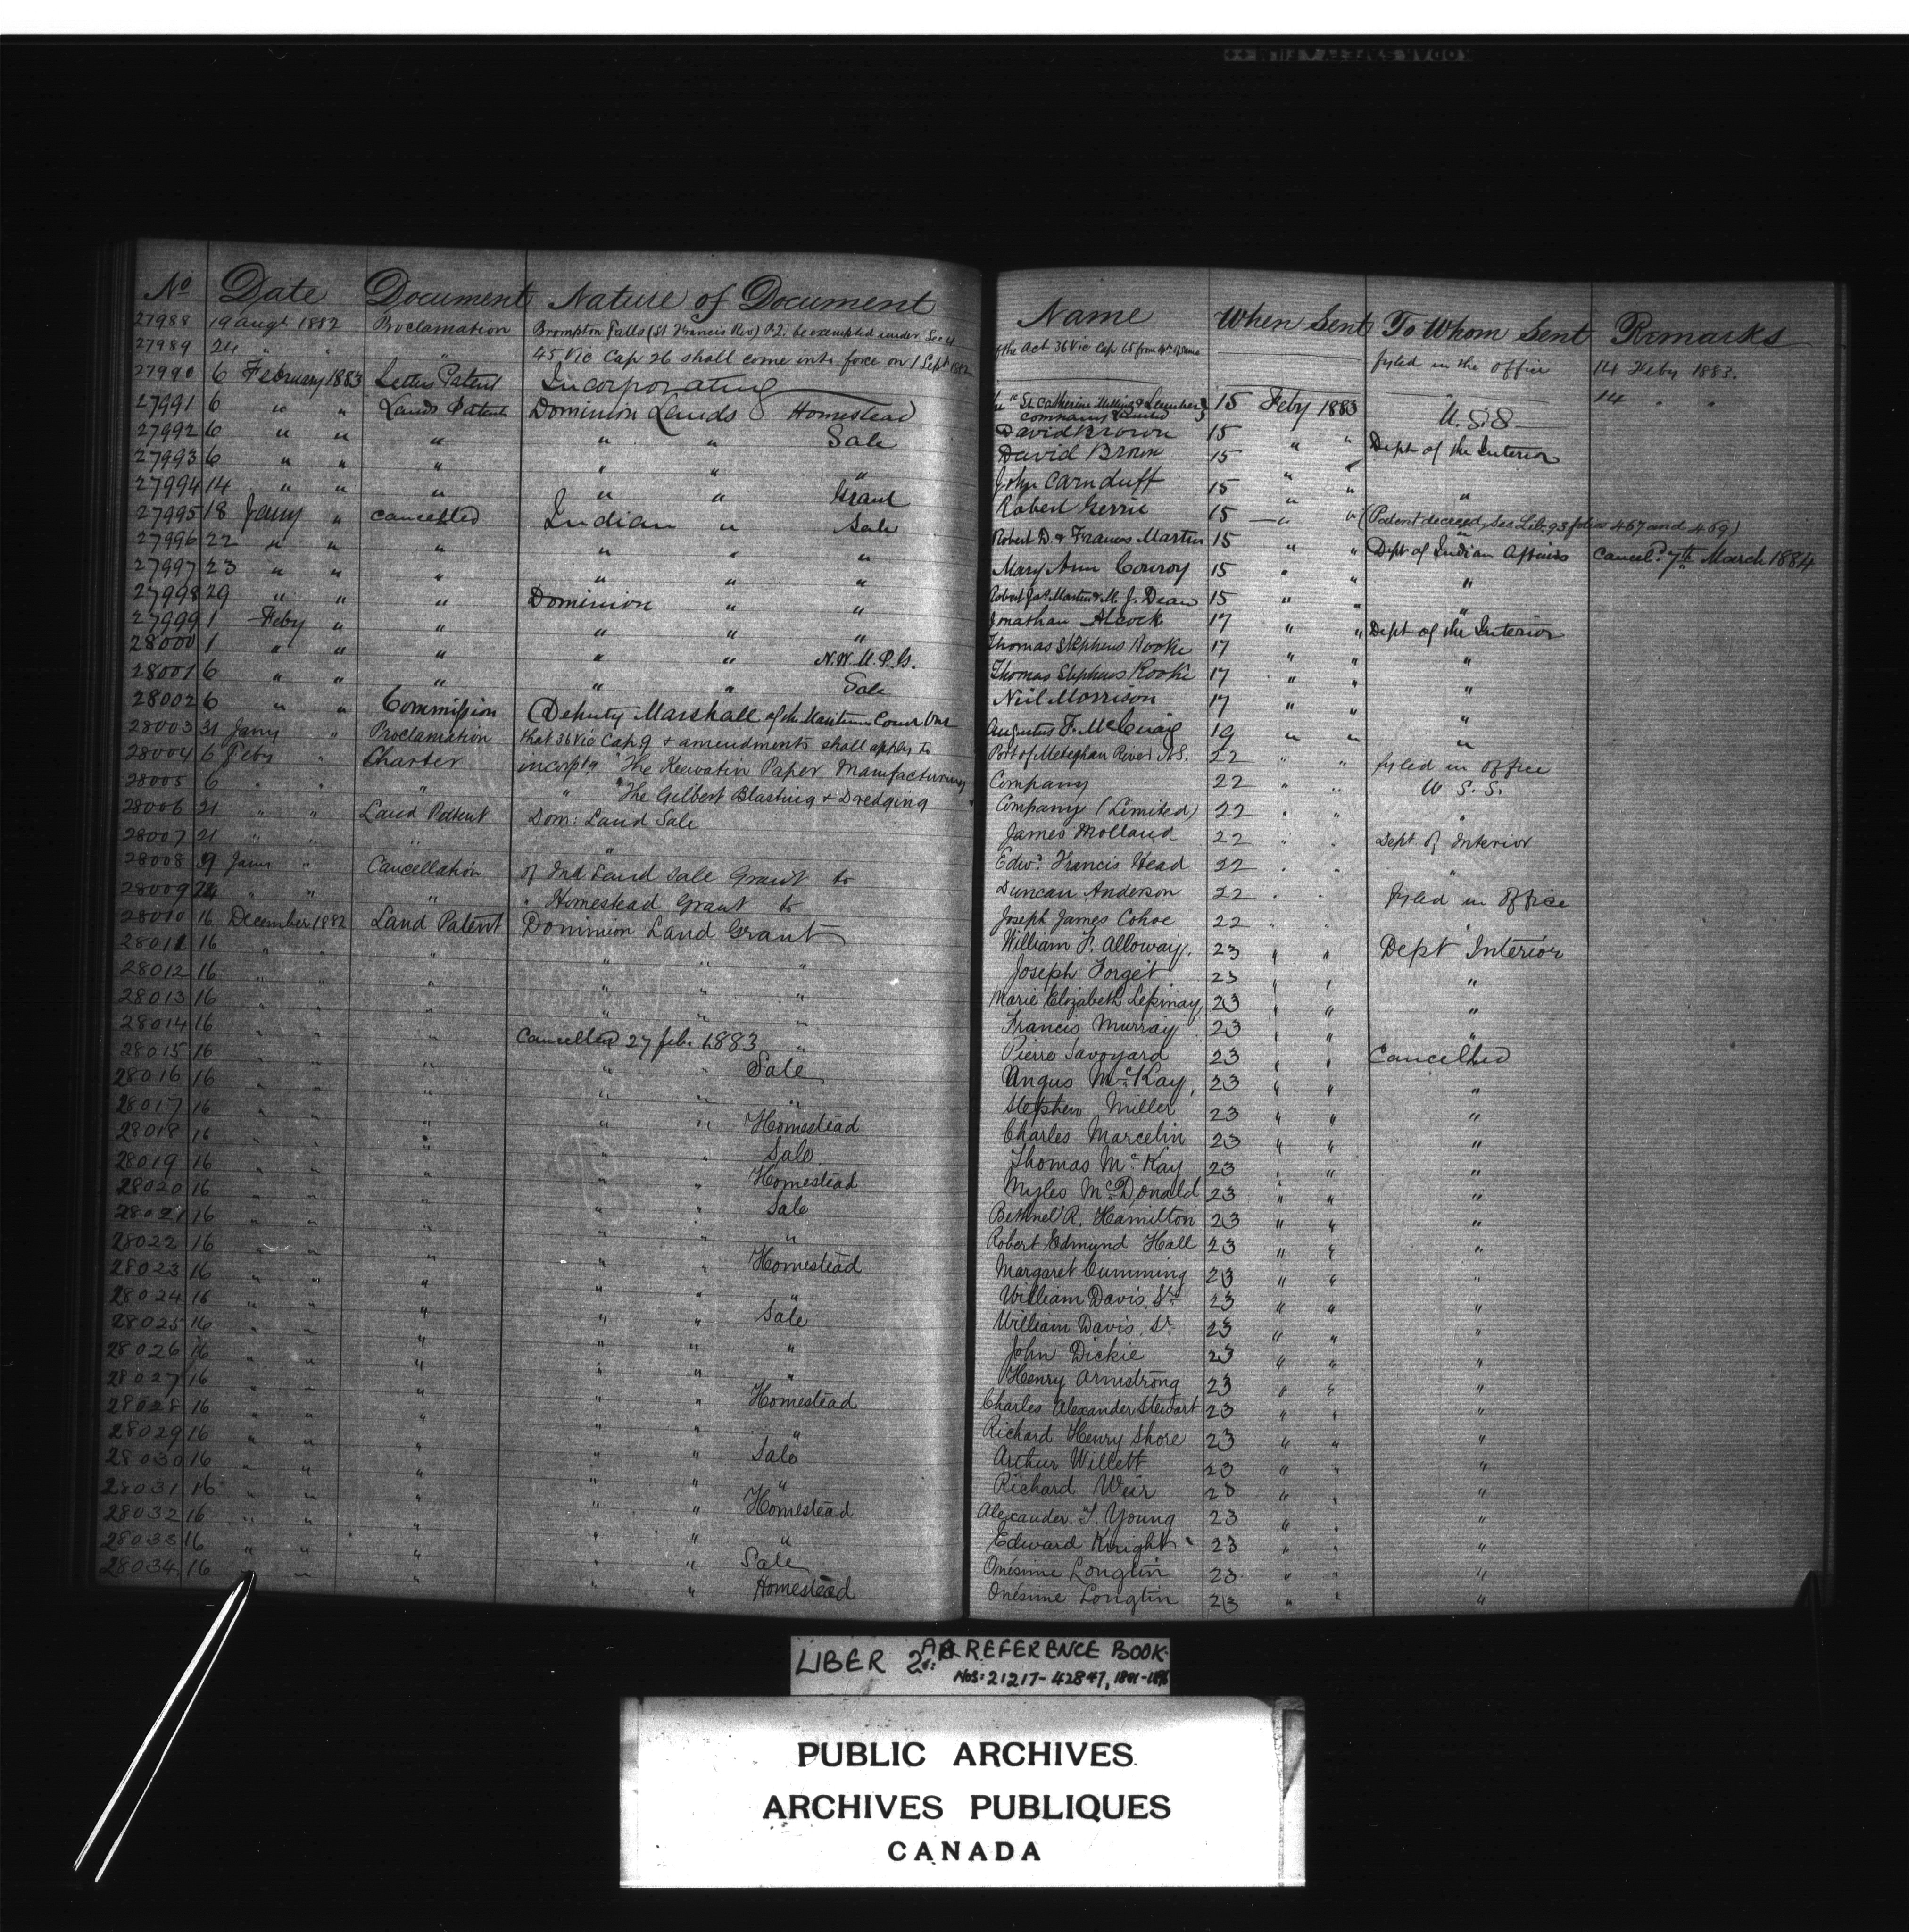 No Date Document Nature of Document Name When Sent To Whom Sent Remarks
27988 19 augt 1882 Proclamation Brompton Falls (St Francis Riv) P.Q. be exempted under Sec 4 of the Act 36 Vic Cap 65 from fyled in the office 14 Feby 1883.
27989 24 " " " 45 Vic Cap 26 shall come into force on 1 Sept 1882 " 14 " "
27990 6 February 1883 Letters Patent Incorporating The "St Catherine Milling & Lumber company Limited 15 Feby 1883 U.S.S
27991 6 " " Lands Patent Dominion Lands Homestead David Brown 15 " " Dept of the Interior
27992 6 " " " " " Sale David Brown 15 " "
27993 6 " " " " " " John Carnduff 15 " " "
27994 14 " " " " " Grant Robert Gerrie 15 " " (Patent decreed, See Lib. 93 folios 467 and 469)
27995 18 Jany " Cancelled Indian " Sale Robert D. & Frances Martin 15 " " Dept of Indian Affairs Canceld. 7th March 1884
27996 22 " " " " " " Mary Ann Conroy 15 " " "
27997 23 " " " " " " Robert Jas. Martin & M. J. Dean 15 " " "
27998 29 " " " Dominion " " Jonathan Alcock 17 " " Dept of the Interior
27999 1 Feby " " " " " Thomas Stephens Rooke 17 " " "
28000 1 " " " " " N.W.M.P.G. Thomas Stephens Rooke 17 " " "
28001 6 " " " " " Sale Neil Morrison 17 " " "
28002 6 " " Commission Deputy Marshall of the Maritime Court Ont Augustus F. McCuaig 19 " " "
28003 31 Jany " Proclamation that 36 Vic Cap 9 & amendments shall apply to Port of Meteghan River N.S. 22 " " fyled in office
28004 6 Feby " Charter incorptg "The Keewatin Paper Manufacturing Company 22 " " U.S.S.
28005 6 " " " " "The Gilbert Blasting & Dredging Company (Limited) 22 " " "
28006 21 " " Land Patent Dom: Land Sale James Molland 22 " " Dept. of Interior
28007 21 " " " " Edwd. Francis Head 22 " " "
28008 9 Jany " Cancellation of Ind Land Sale Grant to Duncan Anderson 22 " " fyled in office
28009 24 " " " " Homestead Grant to Joseph James Cohoe 22 " " "
28010 16 December 1882 Land Patent Dominion Land Grant William F. Alloway. 23 " " Dept Interior
28011 16 " " " " " " Joseph Forget 23 " " "
28012 16 " " " " " " Marie Elizabeth Lepinay 23 " " "
28013 16 " " " " " " Francis Murray 23 " " "
28014 16 " " " Cancelled 27 feb. 1883 " Pierre Savoyard 23 " " Cancelled
28015 16 " " " " " Sale Angus McKay, 23 " " "
28016 16 " " " " " " Stephen Miller 23 " " "
28017 16 " " " " " Homestead Charles Marcelin 23 " " "
28018 16 " " " " " Sale Thomas McKay 23 " " "
28019 16 " " " " " Homestead Myles McDonald 23 " " "
28020 16 " " " " " Sale Bethnel R. Hamilton 23 " " "
28021 16 " " " " " " Robert Edmund Hall 23 " " "
28022 16 " " " " " Homestead Margaret Cumming 23 " " "
28023 16 " " " " " " William Davis, Sr. 23 " " "
28024 16 " " " " " Sale William Davis, Sr. 23 " " "
28025 16 " " " " " " John Dickie 23 " " "
28026 16 " " " " " " Henry Armstrong 23 " " "
28027 16 " " " " " Homestead Charles Alexander Stewart 23 " " "
28028 16 " " " " " " Richard Henry Shore 23 " " "
28029 16 " " " " " Sale Arthur Willett 23 " " "
28030 16 " " " " " " Richard Weir 23 " " "
28031 16 " " " " " Homestead Alexander T. Young 23 " " "
28032 16 " " " " " " Edward Knight 23 " " "
28033 16 " " " " " Sale Onésime Longtin 23 " " "
28034 16 " " " " " Homestead Onésime Longtin 23 " " "
LIBER 2 REFERENCE BOOK
NOS: 21217-42847,
PUBLIC ARCHIVES
ARCHIVES PUBLIQUES
CANADA